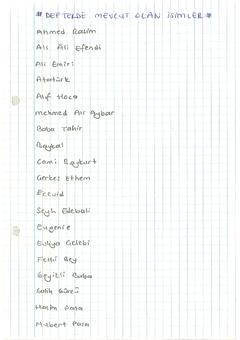 # DEFTERDE MEVCUT OLAN İSİMLER #
Ahmed Rasim
Ali Ali Efendi
Ali Emiri
Atatürk
Akif Hoca
mehmed Ali Aybar
Baba Tahir
Baykal
Cami Baykurt
Çerkes Ethem
Ecevid
Şeyh Edebali
Eugenie
Evliya Çelebi
Fethi Bey
Geyikli Baba
Salih
Pasa
Pasa